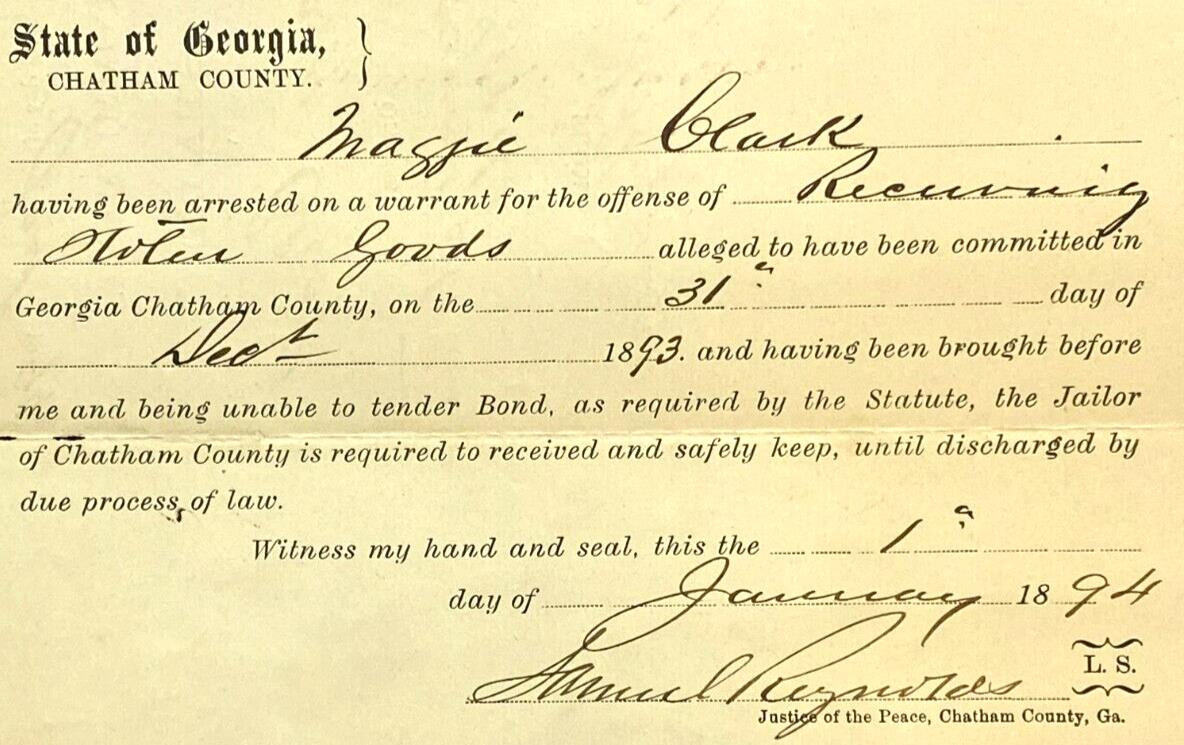 State of Georgia, }
CHATHAM COUNTY.
Maggie Clark
having been arrested on a warrant for the offense of Receiving
Stolen Goods alleged to have been committed in
Georgia Chatham County, on the 31st day of
Dect 1893. and having been brought before
me and being unable to tender Bond, as required by the Statute, the Jailor
of Chatham County is required to received and safely keep, until discharged by
due process, of law.
Witness my hand and seal, this the 1st
day of January 1894
Samuel Reynolds L. S.
Justice of the Peace, Chatham County, Ga.